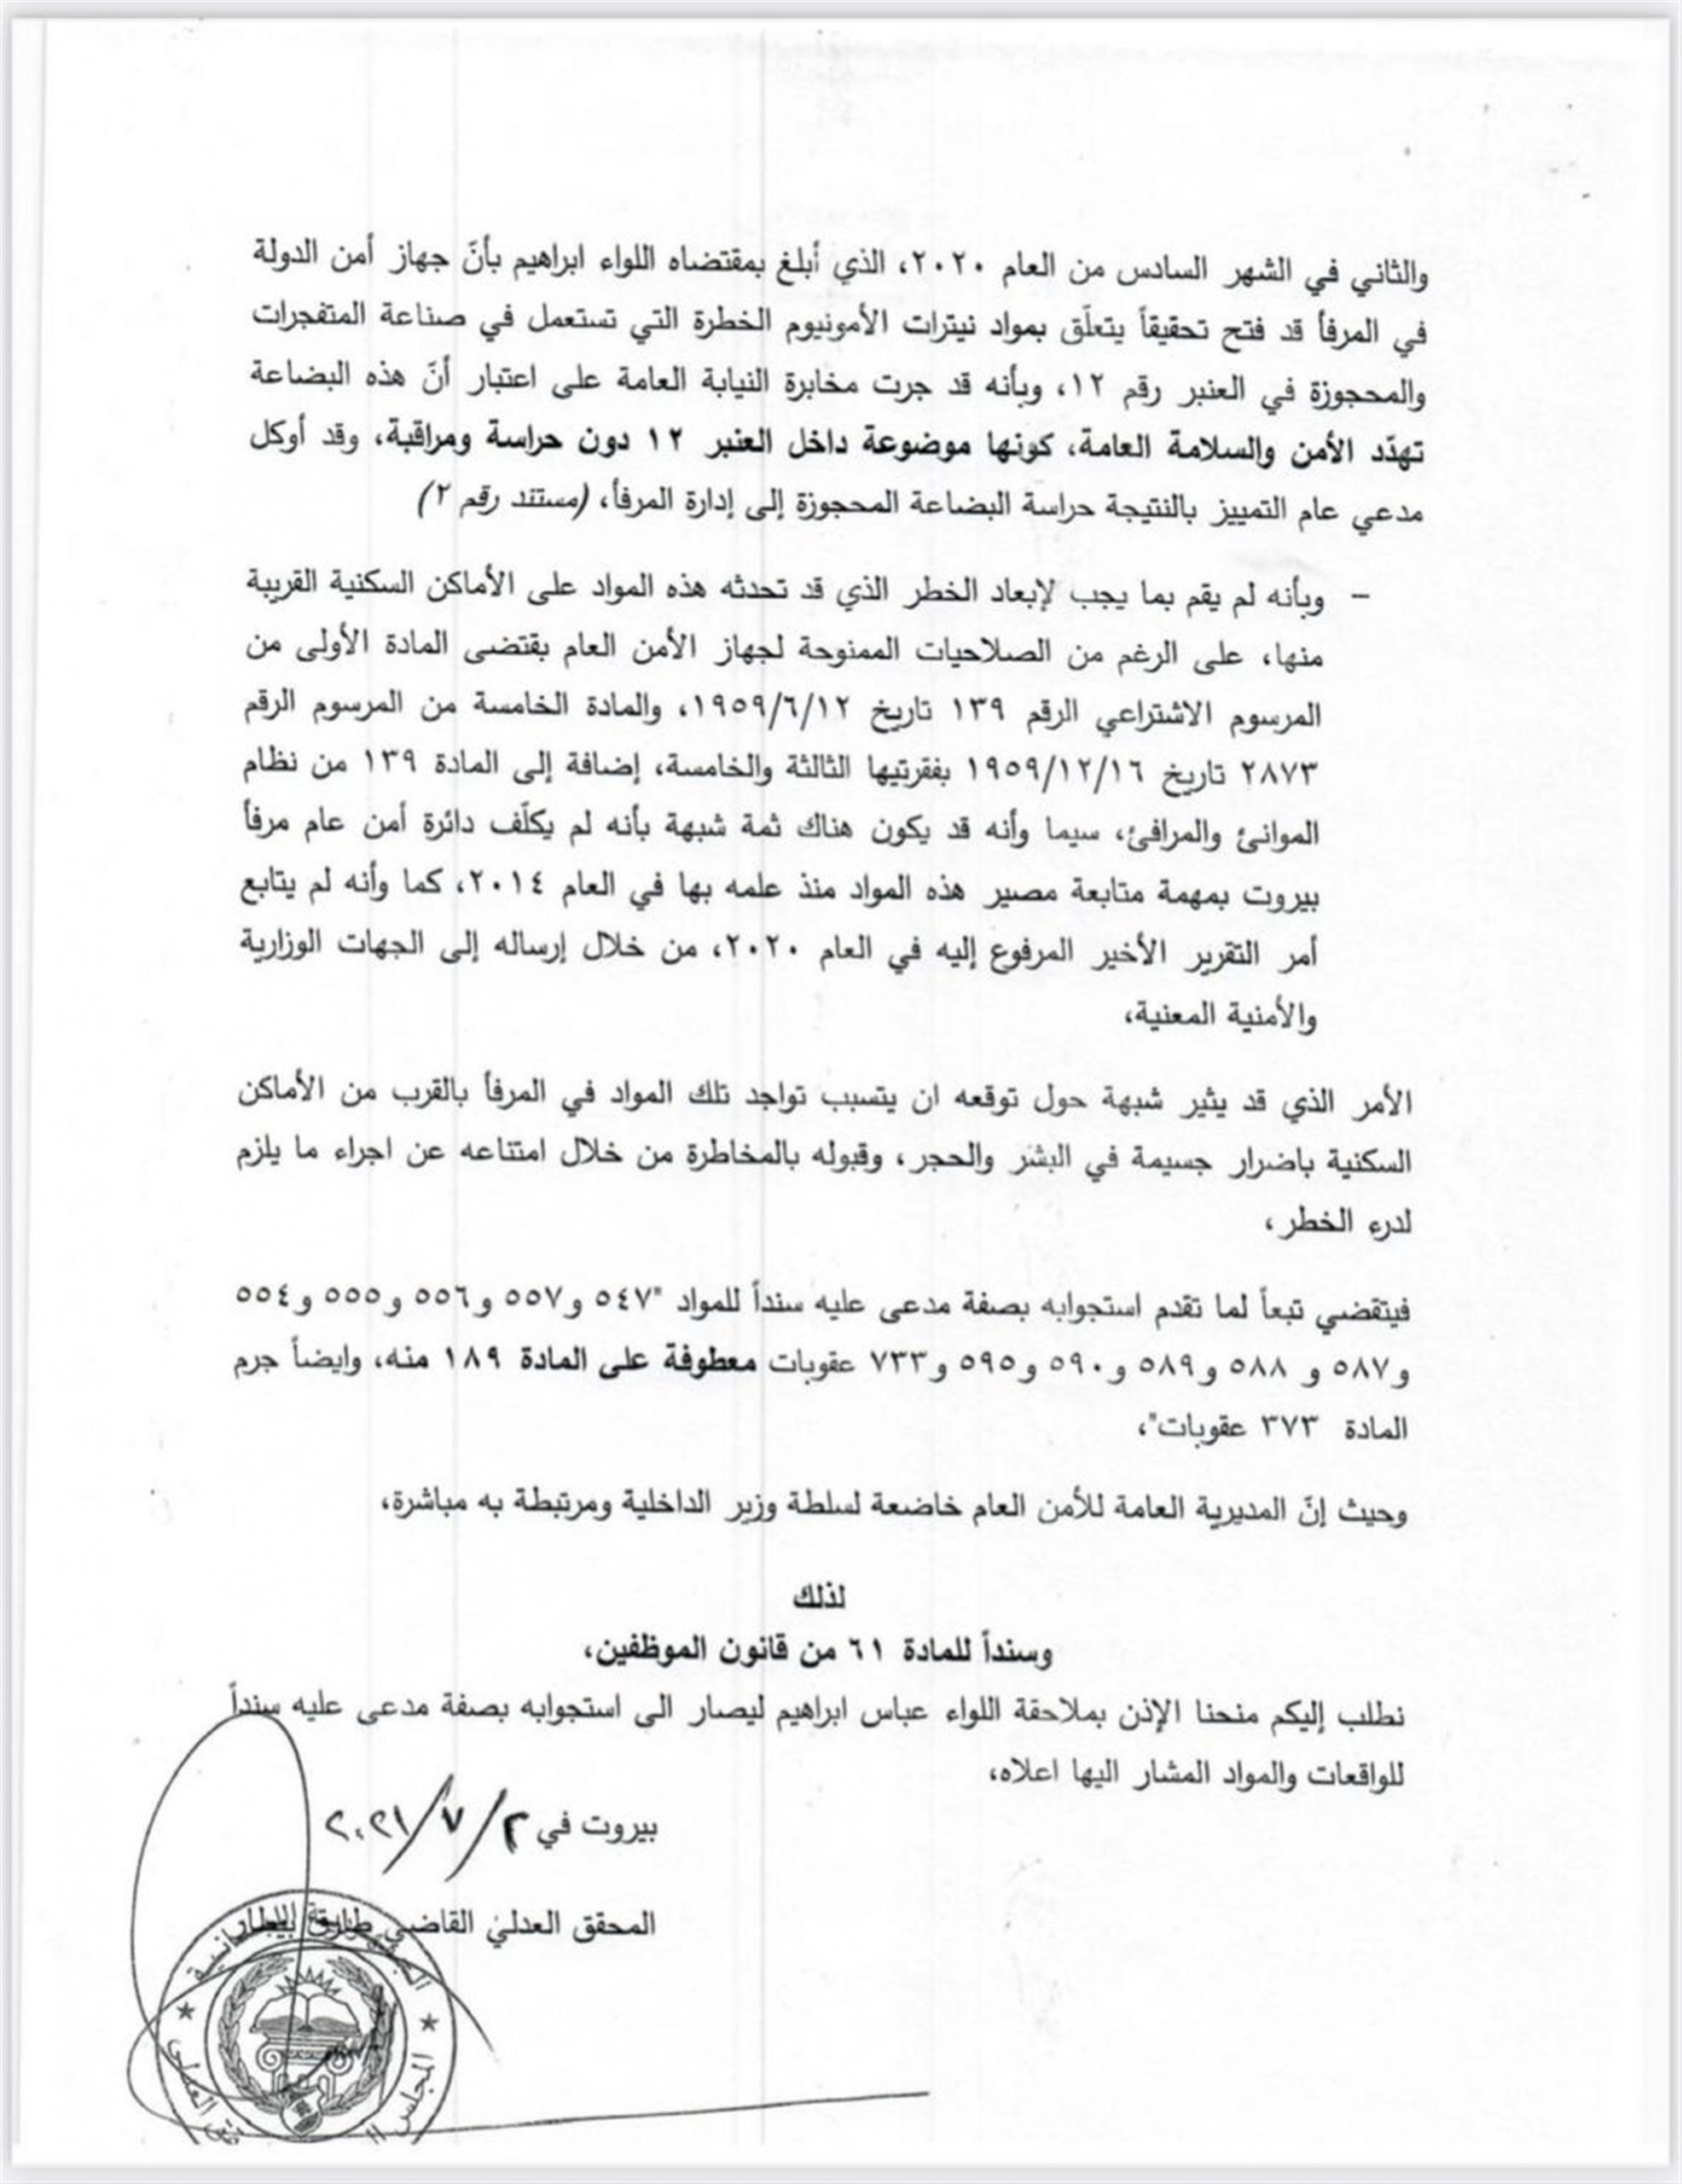 والثاني في الشهر السادس من العام ٢٠٢٠، الذي أبلغ بمقتضاه اللواء ابراهيم بأنّ جهاز أمن الدولة
في المرفأ قد فتح تحقيقاً يتعلّق بمواد نيترات الأمونيوم الخطرة التي تستعمل في صناعة المتفجرات
والمحجوزة في العنبر رقم ١٢، وبأنه قد جرت مخابرة النيابة العامة على اعتبار أنّ هذه البضاعة
تهدّد الأمن والسلامة العامة، كونها موضوعة داخل العنبر ١٢ دون حراسة ومراقبة، وقد أوكل
مدعي عام التمييز بالنتيجة حراسة البضاعة المحجوزة إلى إدارة المرفأ، (مستند رقم ٢)
– وبأنه لم يقم بما يجب لإبعاد الخطر الذي قد تحدثه هذه المواد على الأماكن السكنية القريبة
منها، على الرغم من الصلاحيات الممنوحة لجهاز الأمن العام بقتضى المادة الأولى من
المرسوم الاشتراعي الرقم ١٣٩ تاريخ ١٩٥٩/٦/١٢، والمادة الخامسة من المرسوم الرقم
٢٨٧٣ تاريخ ١٩٥٩/١٢/١٦ بفقرتيها الثالثة والخامسة، إضافة إلى المادة ١٣٩ من نظام
الموانئ والمرافئ، سيما وأنه قد يكون هناك ثمة شبهة بأنه لم يكلّف دائرة أمن عام مرفأ
بيروت بمهمة متابعة مصير هذه المواد منذ علمه بها في العام ٢٠١٤، كما وأنه لم يتابع
أمر التقرير الأخير المرفوع إليه في العام ٢٠٢٠، من خلال إرساله إلى الجهات الوزارية
والأمنية المعنية،
الأمر الذي قد يثير شبهة حول توقعه ان يتسبب تواجد تلك المواد في المرفأ بالقرب من الأماكن
السكنية باضرار جسيمة في البشر والحجر، وقبوله بالمخاطرة من خلال امتناعه عن اجراء ما يلزم
لدرء الخطر،
فيتقضي تبعاً لما تقدم استجوابه بصفة مدعى عليه سنداً للمواد "٥٤٧ و٥٥٧ و٥٥٦ و٥٥٥ و٥٥٤
و٥٨٧ و ٥٨٨ و٥٨٩ و٥٩٠ و٥٩٥ و٧٣٣ عقوبات معطوفة على المادة ١٨٩ منه، وايضاً جرم
المادة ٣٧٣ عقوبات"،
وحيث إنّ المديرية العامة للأمن العام خاضعة لسلطة وزير الداخلية ومرتبطة به مباشرة،
لذلك
وسنداً للمادة ٦١ من قانون الموظفين،
نطلب إليكم منحنا الإذن بملاحقة اللواء عباس ابراهيم ليصار الى استجوابه بصفة مدعى عليه سنداً
للواقعات والمواد المشار اليها اعلاه،
بيروت في ٢/٧/٢٠٢١
المحقق العدلي القاضي طارق بيطار
المجلس